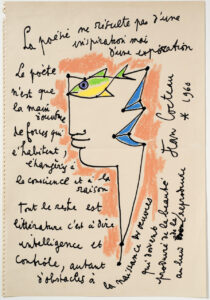 La poésie ne résulte pas d'une
inspiration mais
d'une expiration
Le poète
n'est que
la main
œuvre
de forces qui
l'habitent,
étrangères à
la conscience et à la
raison
Tout le reste est
littérature c'est à dire
intelligence et
contrôle, autant
d'obstacles à
la naissance des œuvres
qui doivent
produire de la beauté
Jean Cocteau
* 1960